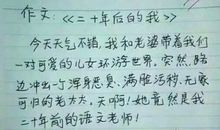 作文：《二十年后的我》
今天天气不错，我和老婆带着我们
一对可爱的儿女环游世界，突然，路
边冲出一个浑身恶臭、满脏污秽、无家
可归的老太太，天啊！她竟然是我
二十年前的语文老师！